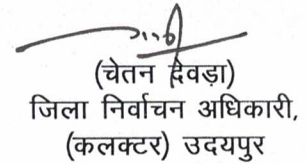 (चेतन देवड़ा)
जिला निर्वाचन अधिकारी,
(कलक्टर) उदयपुर